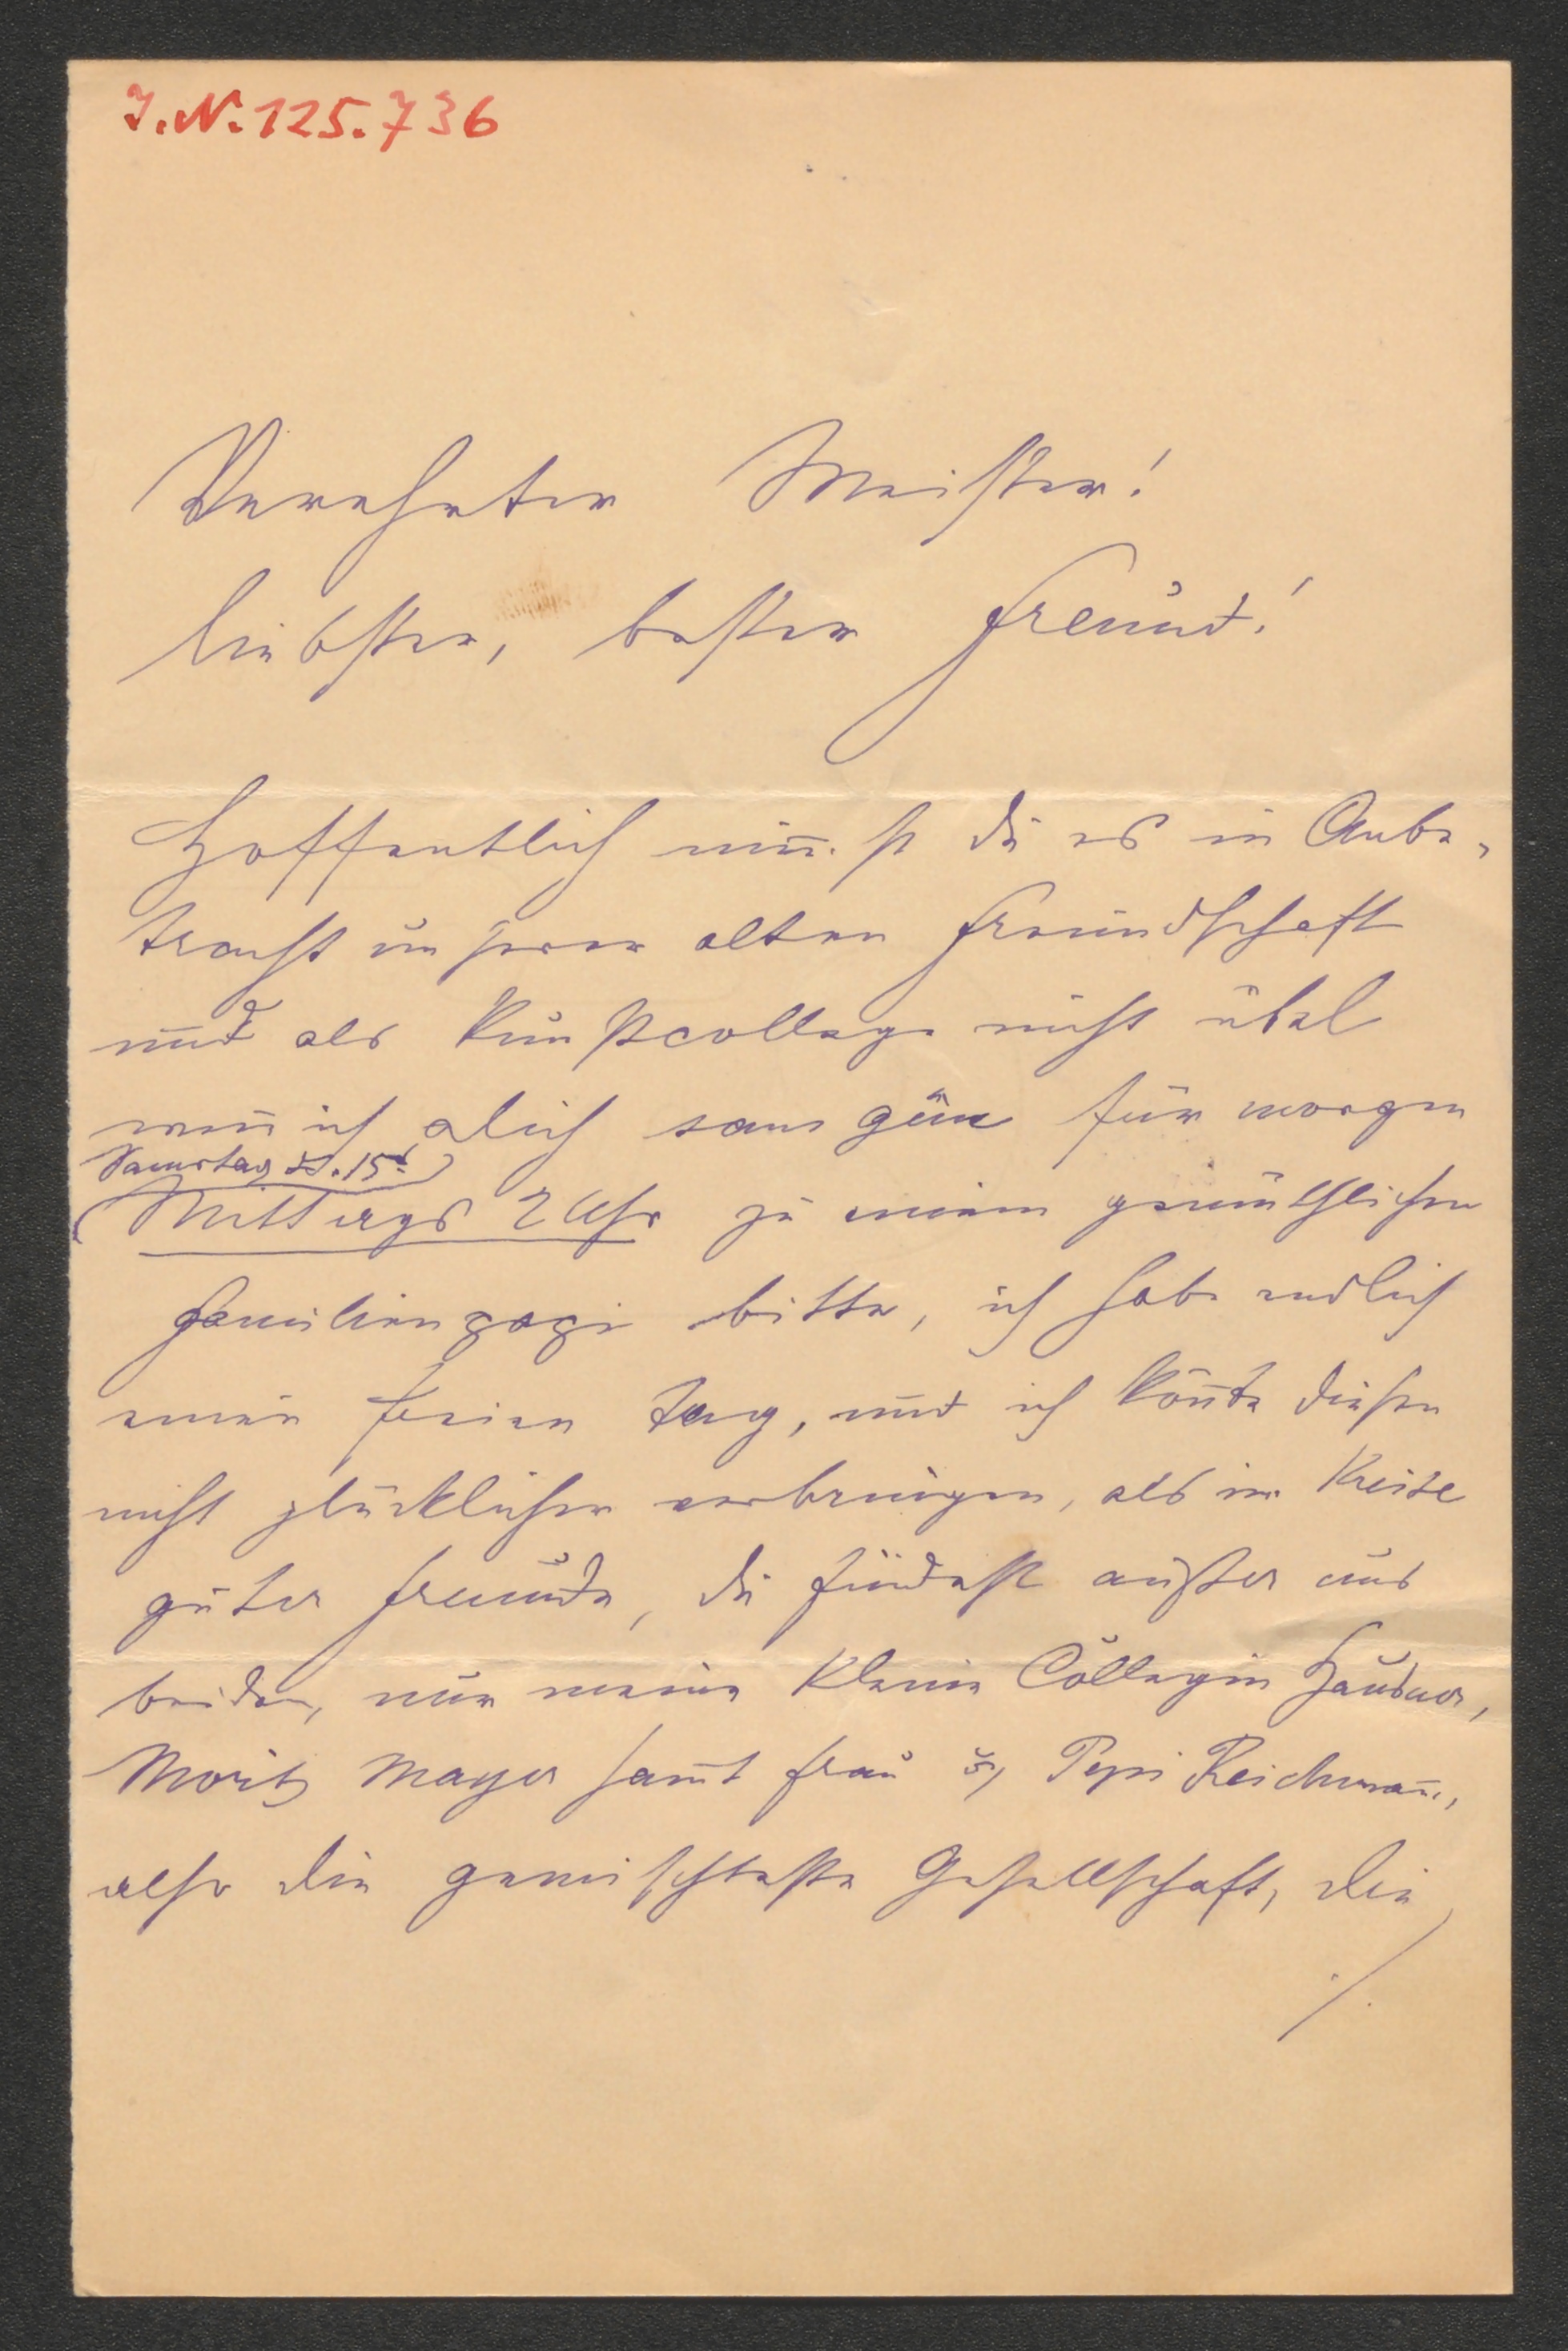 J.N. 125.736
Verehrter Meister!
liebster, bester Freund!
Hoffentlich nim̅st du es in Anbe-
tracht unserer alten Freundschaft
und als Kunstcollege nicht übel
wen̅ ich dich sans gêne für morgen
Samstag d. 15t
(Mittags 2 Uhr zu einem gemüthlichen
Familien bitte, ich habe endlich
einen freien Tag, und ich kön̅te diesen
nicht glücklicher verbringen, als im Kreise
guter Freunde, du findest außer uns
beiden, nur meine kleine Collegin
Moritz Mayer sam̅t Frau u. Pepi Reichman̅,
also die gemischteste Gesellschaft, die
./.